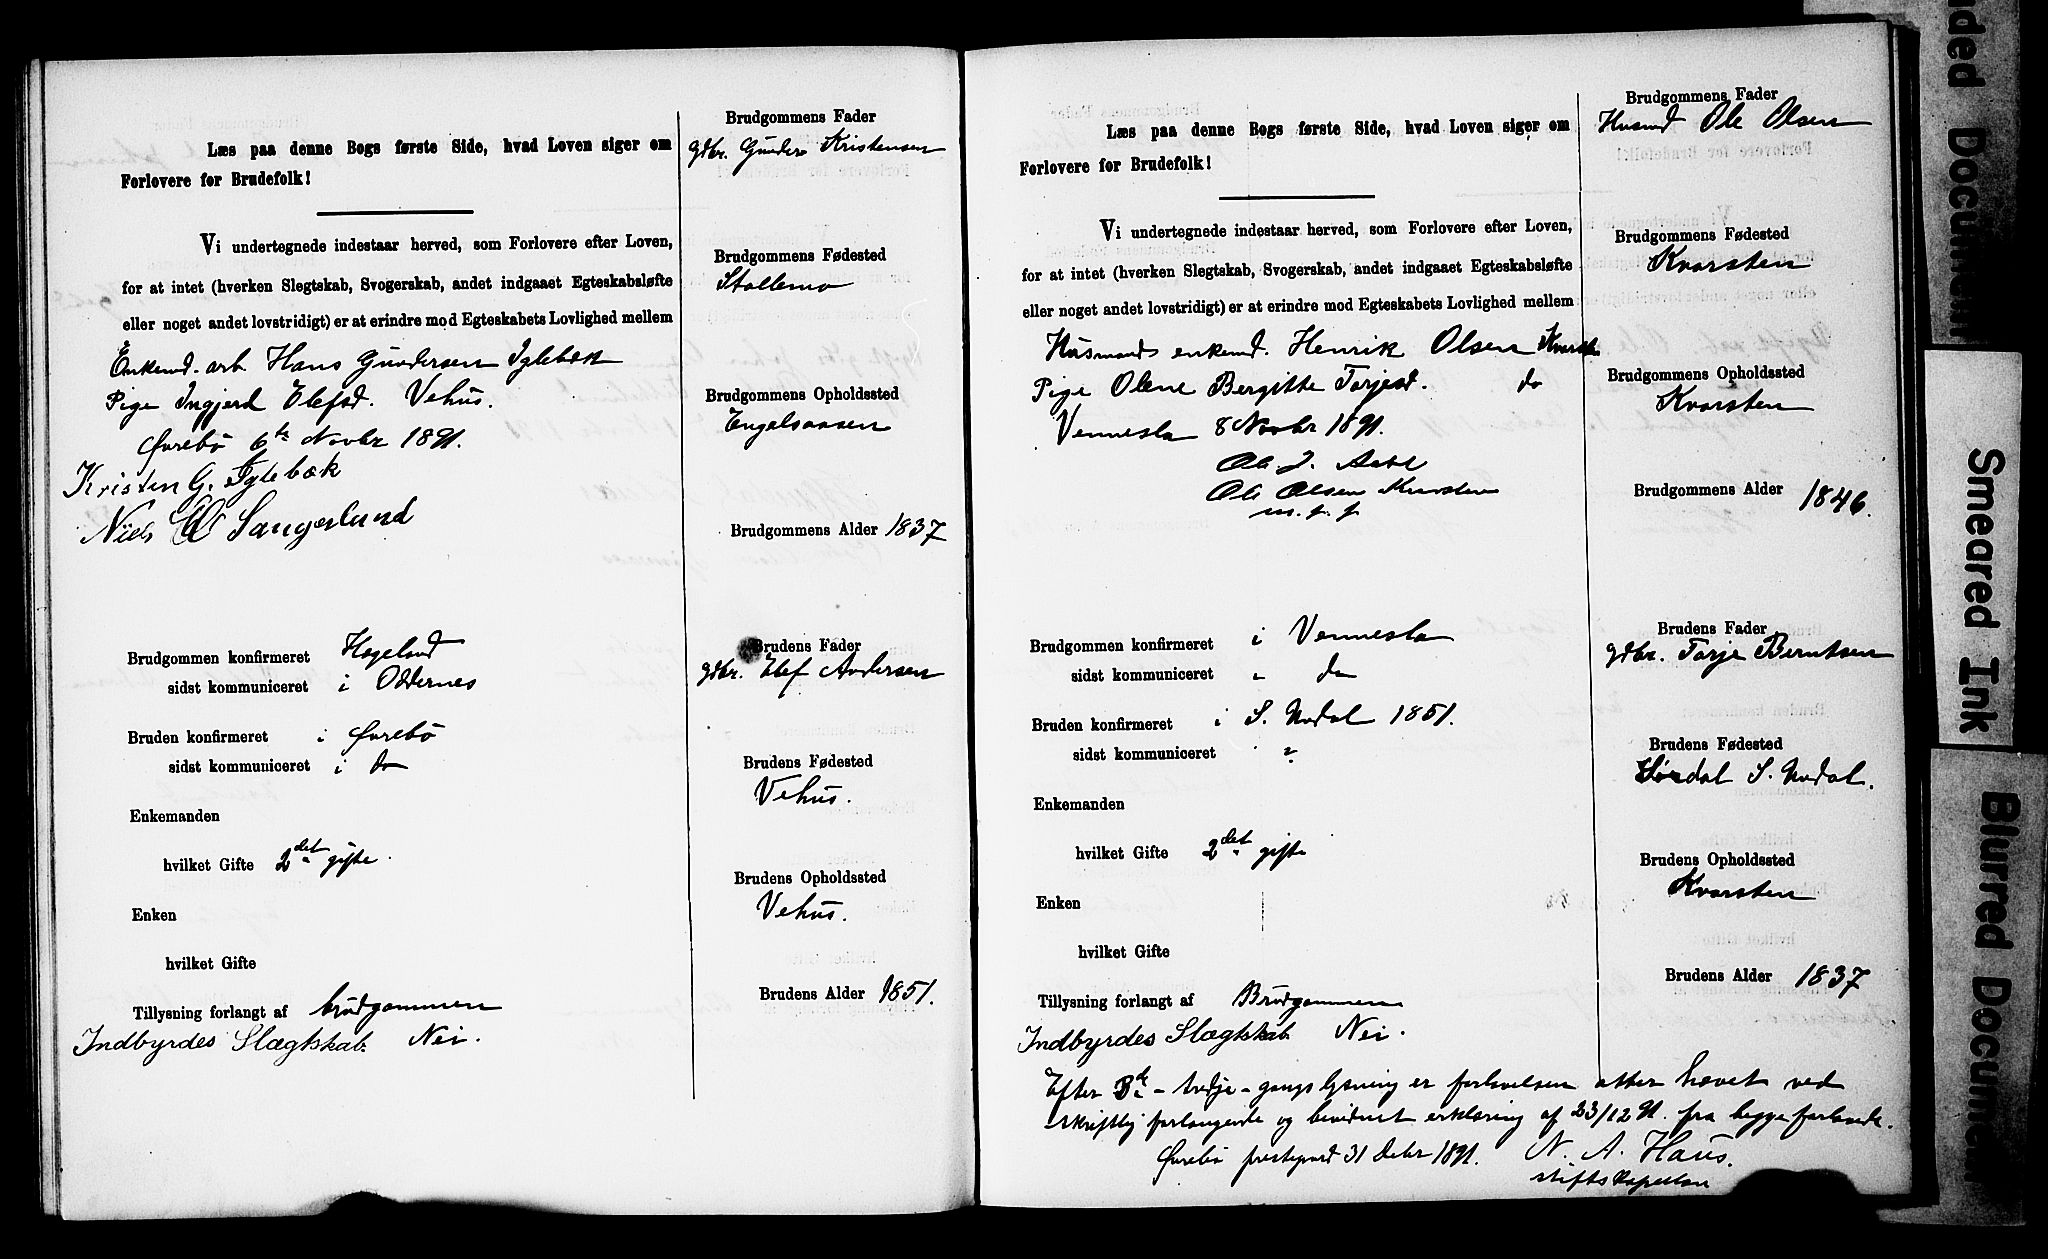 Læs paa denne Bogs første Side, hvad Loven siger om
Forlovere for Brudefolk!
Vi undertegnede indestaar herved, som Forlovere efter Loven,
for at intet (hverken Slegtskab, Svogerskab, andet indgaaet Egteskabsløfte
eller noget andet lovstridigt) er at erindre mod Egteskabets Lovlighed mellem
Enkemd. arb Hans Gundersen Iglebæk
Pige Ingjerd Elefsd. Vehus.
Øvrebø 6te Novbr 1891.
Kristen G. Iglebæk
Niels Sangeslund
Brudgommen konfirmeret Hægeland
sidst kommuniceret i Oddernes
Bruden konfirmeret i Øvrebø
sidst kommuniceret i do
Enkemanden
hvilket Gifte 2det gifte
Enken
hvilket Gifte
Tillysning forlangt af brudgommen
Indbyrdes Slægtskab. Nei.
Brudgommens Fader
gdbr. Gunder Kristensen
Brudgommens Fødested
Stallemo
Brudgommens Opholdssted
Engelsaasen
Brudgommens Alder 1837
Brudens Fader
gdbr. Elef Andersen
Brudens Fødested
Vehus.
Brudens Opholdssted
Vehus.
Brudens Alder 1851.
Læs paa denne Bogs første Side, hvad Loven siger om
Forlovere for Brudefolk!
Vi undertegnede indestaar herved, som Forlovere efter Loven,
for at intet (hverken Slegtskab, Svogerskab, andet indgaaet Egteskabsløfte
eller noget andet lovstridigt) er at erindre mod Egteskabets Lovlighed mellem
Husmands enkemd. Henrik Olsen Kvarsten
Pige Olene Bergitte Torjesd. do
Vennesla 8 Novbr 1891.
Ole J.
Ole Olsen Kvarsten
m. f. p
Brudgommen konfirmeret i Vennesla
sidst kommuniceret " do
Bruden konfirmeret i S. Undal 1851.
sidst kommuniceret "
Enkemanden
hvilket Gifte 2det gifte
Enken
hvilket Gifte
Tillysning forlangt af Brudgommen
Indbyrdes Slægtskab. Nei.
Brudgommens Fader
Husmd Ole Olsen
Brudgommens Fødested
Kvarsten
Brudgommens Opholdssted
Kvarsten
Brudgommens Alder 1846.
Brudens Fader
gdbr. Torje Berntsen
Brudens Fødested
Sørdal S. Undal.
Brudens Opholdssted
Kvarsten
Brudens Alder 1837
Efter 3de - tredje - gangs lysning er forlovelsen atter hævet ved
skriftlig forlangende og bevidnet erklæring af 23/12 91. fra begge forlovede.
Øvrebø prestegaard 31 Debr 1891. N. A. Haus.
stiftskapellan
Documen
Smeared Ink
Blurred Docume